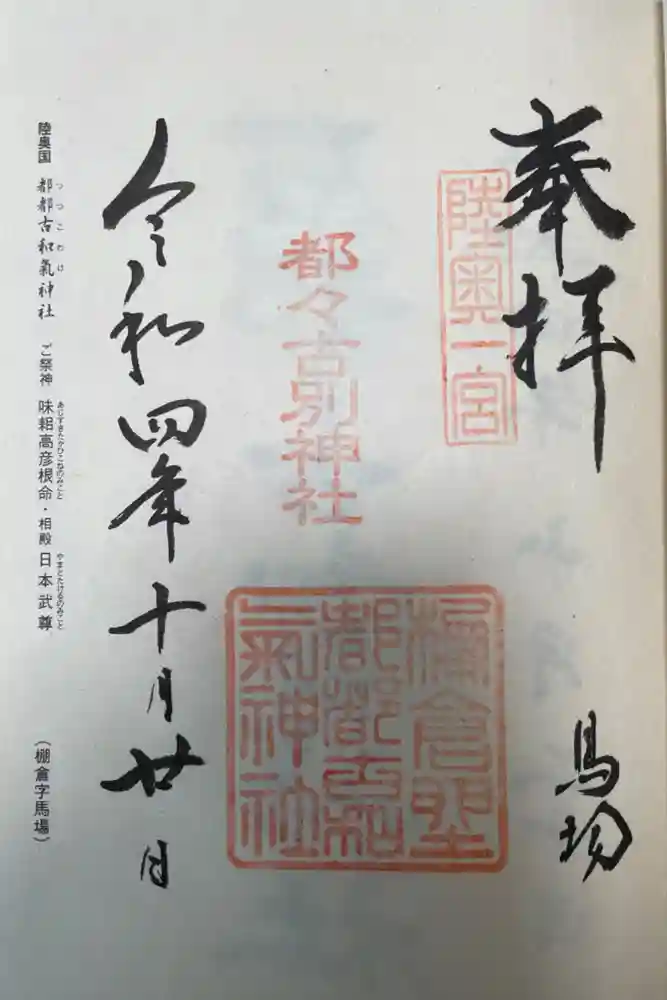 奉拝
馬場
陸奥一宮
都々古別神社
棚倉野
都都古和
氣神社
令和四年十月廿日
陸奥国 都都古和氣神社 ご祭神 味耜高彦根命・相殿 日本武尊 (棚倉字馬場)
つつこわけ
あじすきたかひこねのみこと
やまとたけるのみこと